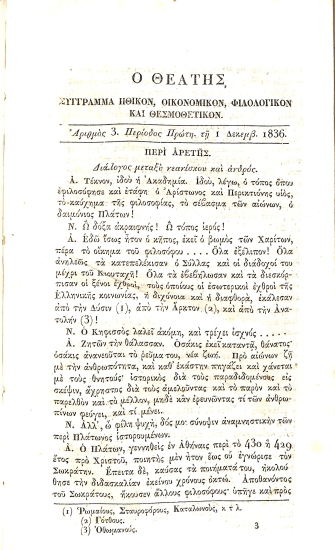 Ο ΘΕΑΤΗΣ,
ΣΥΓΓΡΑΜΜΑ ΗΘΙΚΟΝ, ΟΙΚΟΝΟΜΙΚΟΝ, ΦΙΛΟΛΟΓΙΚΟΝ
ΚΑΙ ΘΕΣΜΟΘΕΤΙΚΟΝ.
Ἀριθμὸς 3. Περίοδος Πρώτη. τῇ 1 Δεκεμβ. 1836.
ΠΕΡΙ ΑΡΕΤΗΣ.
Διάλογος μεταξὺ νεανίσκου καὶ ἀνδρός.
Α. Τέκνον, ἰδοὺ ἡ Ἀκαδημία. Ἰδού, λέγω, ὁ τόπος ὅπου
ἐφιλοσόφησε καὶ ἐτάφη ὁ Ἀρίστωνος καὶ Περικτιόνης υἱός,
τὸ καύχημα τῆς φιλοσοφίας, τὸ σέβασμα τῶν αἰώνων, ὁ
δαιμόνιος Πλάτων!
Ν. Ὢ δόξα ἀκραιφνής! Ὢ τόπος ἱερός!
Α. Ἐδῶ ἴσως ἦτον ὁ κῆπος, ἐκεῖ ὁ βωμὸς τῶν Χαρίτων,
πέρα τὸ οἴκημα τοῦ φιλοσόφου.... Ὅλα ἐξέλιπον! Ὅλα
ἀνηλεῶς τὰ κατεπελέκισαν ὁ Σύλλας καὶ οἱ διάδοχοί του
μέχρι τοῦ Κιουταχῆ! Ὅλα τὰ ἐβεβήλωσαν καὶ τὰ διεσκόρ-
πισαν οἱ ξένοι ἐχθροί, τοὺς ὁποίους οἱ ἐσωτερικοὶ ἐχθροὶ τῆς
Ἑλληνικῆς κοινωνίας, ἡ διχόνοια καὶ ἡ διαφθορά, ἐκάλεσαν
ἀπὸ τὴν Δύσιν (1), ἀπὸ τὴν Ἄρκτον (2), καὶ ἀπὸ τὴν Ἀνα-
τολήν (3)!
Ν. Ὁ Κηφισσὸς λαλεῖ ἀκόμη, καὶ τρέχει ἰσχνός.....
Α. Ζητῶν τὴν θάλασσαν. Ὁσάκις ἐκεῖ καταντᾷ, θάνατος·
ὁσάκις ἀνανεοῦται τὸ ῥεῦμά του, νέα ζωή. Πρὸ αἰώνων ζῇ
μὲ τὴν ἀνθρωπότητα, καὶ καθ' ἑκάστην πηγάζει καὶ χάνεται
μὲ τοὺς θνητούς! ἱστορικὸς διὰ τοὺς παραδιδομένους εἰς
σκέψιν, ἄχρηστος διὰ τοὺς ἀμελοῦντας καὶ τὸ παρὸν καὶ τὸ
παρελθὸν καὶ τὸ μέλλον, μηδὲ κἂν ἐρευνῶντας τί τῶν ἀνθρω-
πίνων φεύγει, καὶ τί μένει.
Ν. Ἀλλ', ὦ φίλη ψυχή, δός μοι σύνοψιν ἀναμνηστικὴν τῶν
περὶ Πλάτωνος ἱστορουμένων.
Α. Ὁ Πλάτων, γεννηθεὶς ἐν Ἀθήναις περὶ τὸ 430 ἢ 429
ἔτος πρὸ Χριστοῦ, ποιητὴς μὲν ἦτον ἕως οὗ ἐγνώρισε τὸν
Σωκράτην. Ἔπειτα δέ, καύσας τὰ ποιήματά του, ἠκολού-
θησε τὴν διδασκαλίαν ἐκείνου χρόνους ὀκτώ. Ἀποθανόντος
τοῦ Σωκράτους, ἤκουσεν ἄλλους φιλοσόφους· ὑπῆγε καὶ πρὸς
(1) Ῥωμαίους, Σταυροφόρους, Καταλωνούς, κ τ λ.
(2) Γότθους.
(3) Ὀθωμανούς.
3